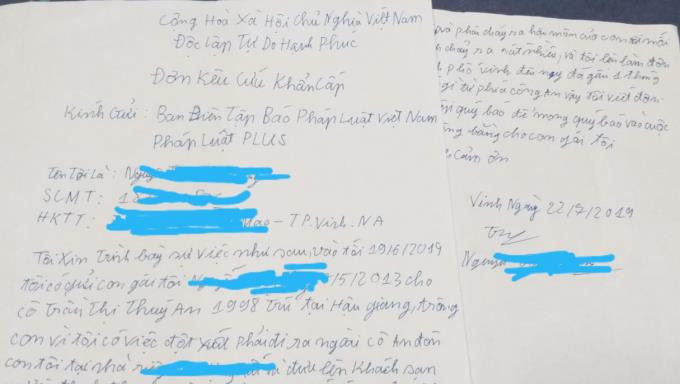 Cộng Hoà Xã Hội Chủ Nghĩa Việt Nam
Độc Lập Tự Do Hạnh Phúc
Đơn Kêu Cứu Khẩn Cấp
Kính Gửi: Ban Biên Tập Báo Pháp Luật Việt Nam
Pháp Luật PLUS
Tên Tôi Là:
SCMT:
HKTT: - TP. Vinh. NA
Tôi Xin Trình bày sự việc như sau, vào tối 19/6/2019
tôi có gửi con gái tôi /5/2013 cho
cô Trần Thị Thuý An 1998 trú tại Hậu giang, trông
con vì tôi có việc đột phải đi ra ngoài cô An đón
con tôi tại nhà và đưa lên Khách sạn
và phải chảy ra hậu môn của con tôi mới
chảy ra rất nhiều, và tôi lên làm đơn
vinh đến nay đã gần 1 tháng
gì từ phía công An vậy tôi viết đơn
quý báo để mong quý báo vào cuộc
bằng cho con gái tôi
cảm ơn
Vinh Ngày 22/7/2019